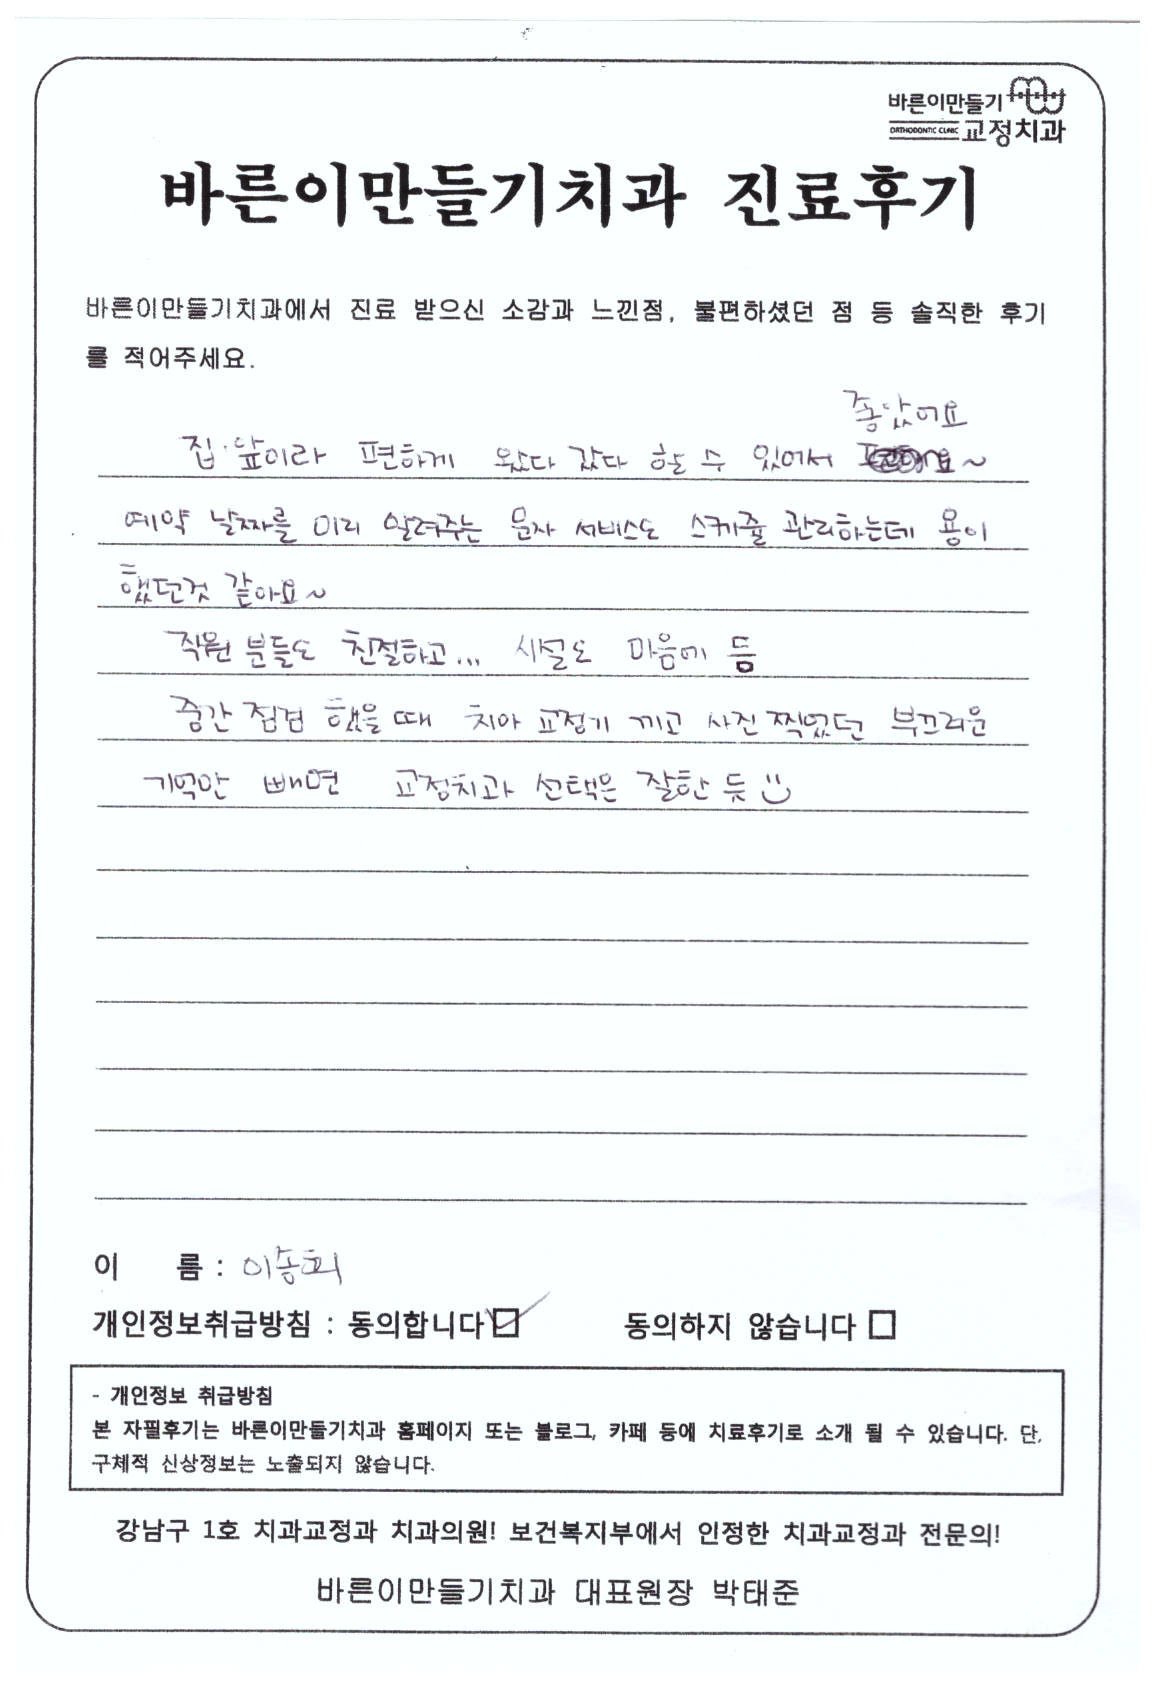 바른이만들기
ORTHODONTIC CLINIC 교정치과
바른이만들기치과 진료후기
바른이만들기치과에서 진료 받으신 소감과 느낀점, 불편하셨던 점 등 솔직한 후기
를 적어주세요.
좋았어요
집 앞이라 편하게 왔다 갔다 할 수 있어서 ~
예약 날짜를 미리 알려주는 문자 서비스도 스케쥴 관리하는데 용이
했던것 같아요~
직원 분들도 친절하고... 시설도 마음에 듬
중간 점검 했을 때 치아 교정기 끼고 사진 찍었던 부끄러운
기억만 빼면 교정치과 선택은 잘한 듯
이 름 : 이송희
개인정보취급방침 : 동의합니다 동의하지 않습니다
- 개인정보 취급방침
본 자필후기는 바른이만들기치과 홈페이지 또는 블로그, 카페 등에 치료후기로 소개 될 수 있습니다. 단,
구체적 신상정보는 노출되지 않습니다.
강남구 1호 치과교정과 치과의원! 보건복지부에서 인정한 치과교정과 전문의!
바른이만들기치과 대표원장 박태준